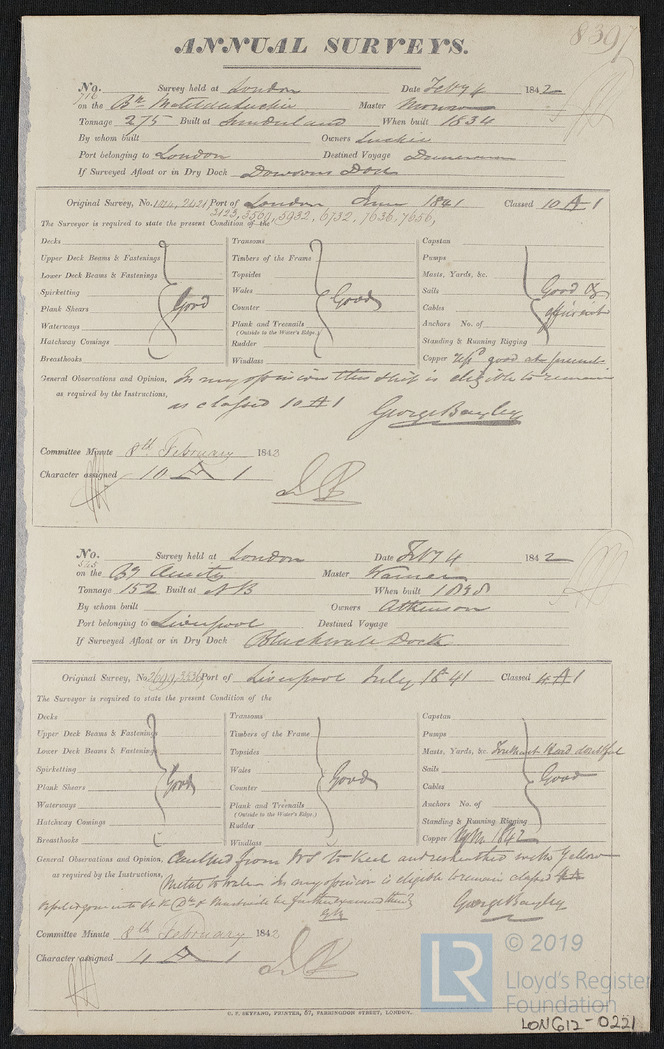 8397
ANNUAL SURVEYS.
No. 716 Survey held at London Date Feby 4 1842
on the Br. Matilda Luckie Master
Tonnage 275 Built at Sunderland When built 1834
By whom built Owners Luckie
Port belonging to London Destined Voyage
If Surveyed Afloat or in Dry Dock Dowsons Dock
Original Survey, No. 1874, 2421, Port of London June 1841 Classed 10 A 1
3123, 3564, 5932, 6732, 7636, 7656,
The Surveyor is required to state the present Condition of the
Decks Transoms Capstan
Upper Deck Beams & Fastenings Timbers of the Frame Pumps
Lower Deck Beams & Fastenings Topsides Masts, Yards, &c.
Spirketting Wales Sails Good &
Plank Shears Good Counter Good Cables efficient
Waterways Plank and Treenails Anchors No. of
(Outside to the Water's Edge.)
Hatchway Comings Rudder Standing & Running Rigging
Breasthooks Windlass Copper good at present
General Observations and Opinion, In my opinion this ship is eligible to remain
as required by the Instructions, as classed 10 A 1
George Bayley
Committee Minute 8th February 1842
Character assigned 10 A 1
No. 545 Survey held at London Date Feby 4 1842
on the Bg Master
Tonnage 152 Built at N B When built 1838
By whom built Owners Atkinson
Port belonging to Liverpool Destined Voyage
If Surveyed Afloat or in Dry Dock Blackwall Dock
Original Survey, No. Port of Liverpool July 1841 Classed 4 A 1
The Surveyor is required to state the present Condition of the
Decks Transoms Capstan
Upper Deck Beams & Fastenings Timbers of the Frame Pumps
Lower Deck Beams & Fastenings Topsides Masts, Yards, &c. Head doubtful
Spirketting Wales Sails
Plank Shears Good Counter Good Cables Good
Waterways Plank and Treenails Anchors No. of
(Outside to the Water's Edge.)
Hatchway Comings Rudder Standing & Running Rigging
Breasthooks Windlass Copper 1842
General Observations and Opinion, Caulked from to Keel and resheathed with Yellow
as required by the Instructions, Metal to wales In my opinion is eligible to remain classed
George Bayley
Committee Minute 8th February 1842
Character assigned 4 A 1
C. F. SEYFANG, PRINTER, 57, FARRINGDON STREET, LONDON.
LR © 2019
Lloyd's Register
Foundation
LON612-0221